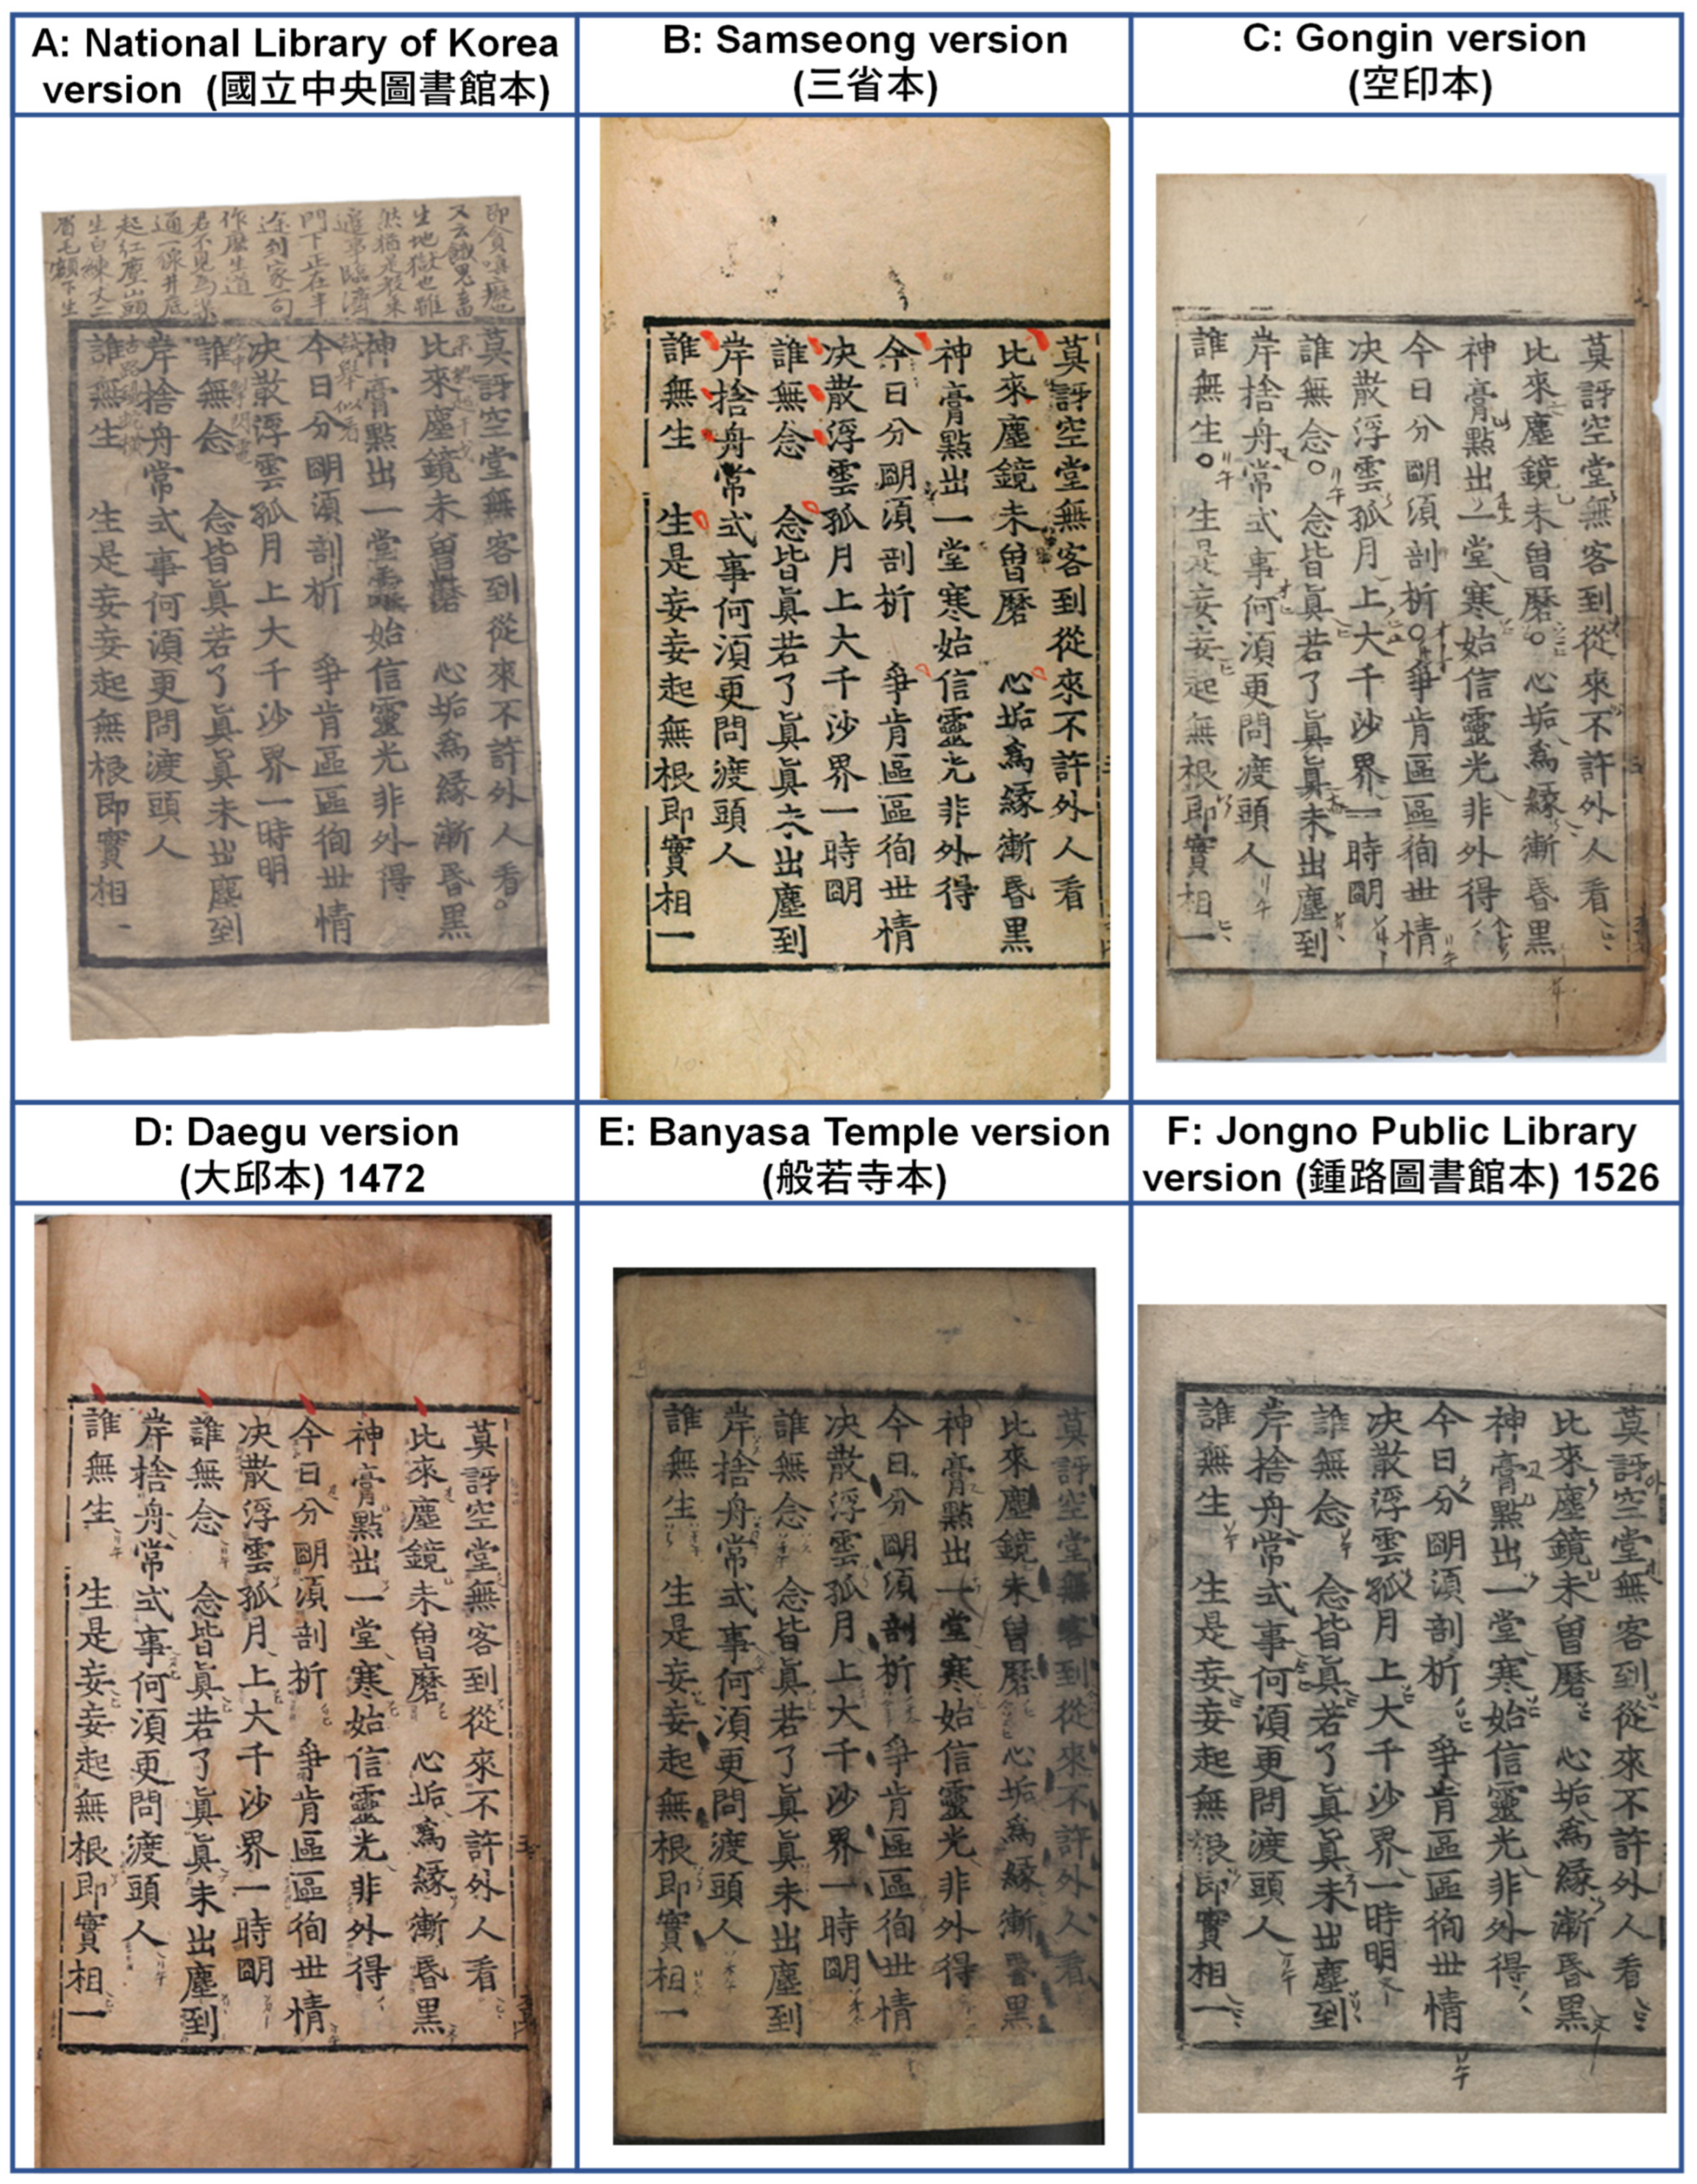 A: National Library of Korea
version (國立中央圖書館本)
即貪嗔癡也
又云餓鬼畜
生地獄也雖
然猶是
邊事臨濟
門下正在半
途到家一句
作麽生道
君不見
通一線井底
起紅塵山頭
生白練丈三
眉毛額下生
莫訝空堂無客到從來不許外人看
比來塵鏡未曽磨 心垢爲緣漸昏黑
神膏點出一堂寒始信靈光非外得
今日分眀湏剖析 爭肯區區徇丗情
决散浮雲孤月上大千沙界一時明
誰無念 念皆眞若了眞眞未出塵到
岸捨舟常式事何湏更問渡頭人
誰無生 生是妄妄起無根即實相一
B: Samseong version
(三省本)
莫訝空堂無客到從來不許外人看
比來塵鏡未曽磨 心垢爲緣漸昏黑
神膏點出一堂寒始信靈光非外得
今日分眀湏剖析 爭肯區區徇丗情
决散浮雲孤月上大千沙界一時眀
誰無念 念皆眞若了眞眞出塵到
岸捨舟常式事何湏更問渡頭人
誰無生 生是妄妄起無根即實相一
C: Gongin version
(空印本)
莫訝空堂無客到從來不許外人看
比來塵鏡未曽磨 心垢爲緣漸昏黑
神膏點出一堂寒始信靈光非外得
今日分眀湏剖析 爭肯區區徇丗情
决散浮雲孤月上大千沙界一時眀
誰無念 念皆眞若了眞眞未出塵到
岸捨舟常式事何湏更問渡頭人
誰無生 生是妄妄起無根即實相一
D: Daegu version
(大邱本) 1472
莫訝空堂無客到從來不許外人看
比來塵鏡未曽磨 心垢爲緣漸昏黑
神膏點出一堂寒始信靈光非外得
今日分眀湏剖析 爭肯區區徇丗情
决散浮雲孤月上大千沙界一時眀
誰無念 念皆眞若了眞眞未出塵到
岸捨舟常式事何湏更問渡頭人
誰無生 生是妄妄起無根即實相一
E: Banyasa Temple version
(般若寺本)
莫訝空堂無客到從來不許外人看
比來塵鏡未曽磨 心垢爲緣漸昏黑
神膏點出一堂寒始信靈光非外得
今日分眀湏剖析 爭肯區區徇丗情
决散浮雲孤月上大千沙界一時眀
誰無念 念皆眞若了眞眞未出塵到
岸捨舟常式事何湏更問渡頭人
誰無生 生是妄妄起無根即實相一
F: Jongno Public Library
version (鍾路圖書館本) 1526
莫訝空堂無客到從來不許外人看
比來塵鏡未曽磨 心垢爲緣漸昏黑
神膏點出一堂寒始信靈光非外得
今日分眀湏剖析 爭肯區區徇丗情
决散浮雲孤月上大千沙界一時明
誰無念 念皆眞若了眞眞未出塵到
岸捨舟常式事何湏更問渡頭人
誰無生 生是妄妄起無根即實相一